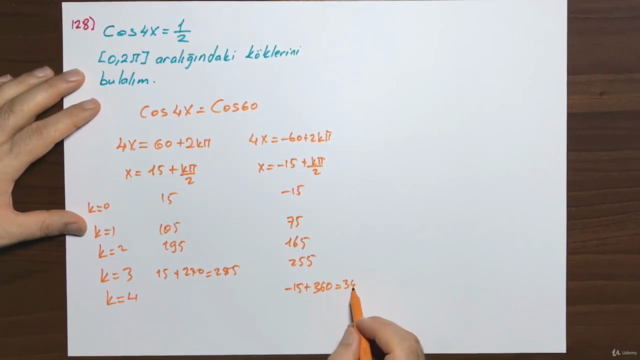 128) Cos4x = 1/2
[0,2π] aralığındaki köklerini
bulalım.
Cos4x = Cos60
4x = 60+2kπ 4x = -60+2kπ
x = 15 + kπ/2 x = -15 + kπ/2
k=0 15 -15
k=1 105 75
k=2 195 165
k=3 15+270=285 255
k=4 -15+360=34
Udemy